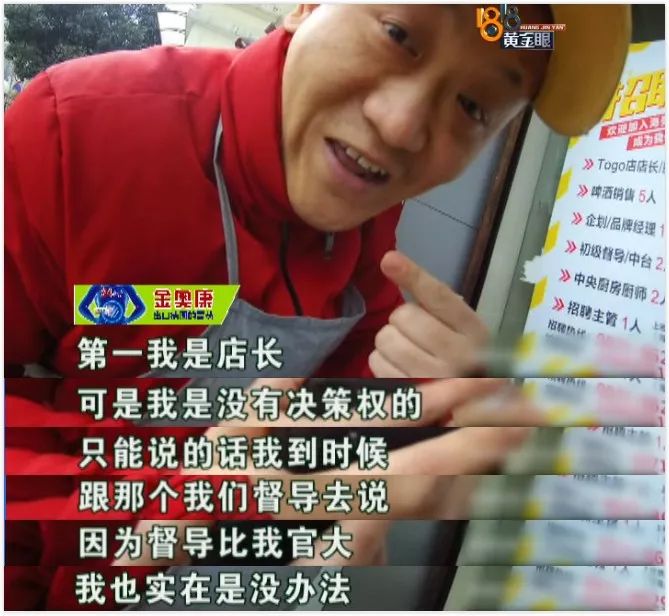 1818
HUANG JIN YAN
黄金眼
招聘
欢迎加入海
成为我
Togo店店长/
啤酒销售 5人
企划/品牌经理 1
初级督导/中台 2
中央厨房厨师 2
招聘主管 1人
招聘热线
金奥康
出口法国的雪糕
第一我是店长
可是我是没有决策权的
只能说的话我到时候
跟那个我们督导去说
因为督导比我官大
我也实在是没办法